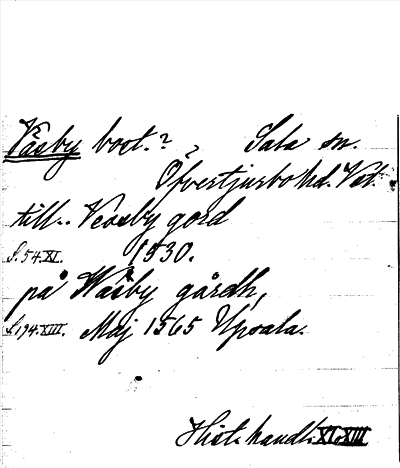 Väsby bost.?, Sala sn.
Öfvertjurbo hd. Vst.
till.. Veosby gord
S. 54. XI. 1530.
på Wåsby gårdh,
S. 194. XIII. Maj 1565 Upsala.
Hist. handl. XI. XIII